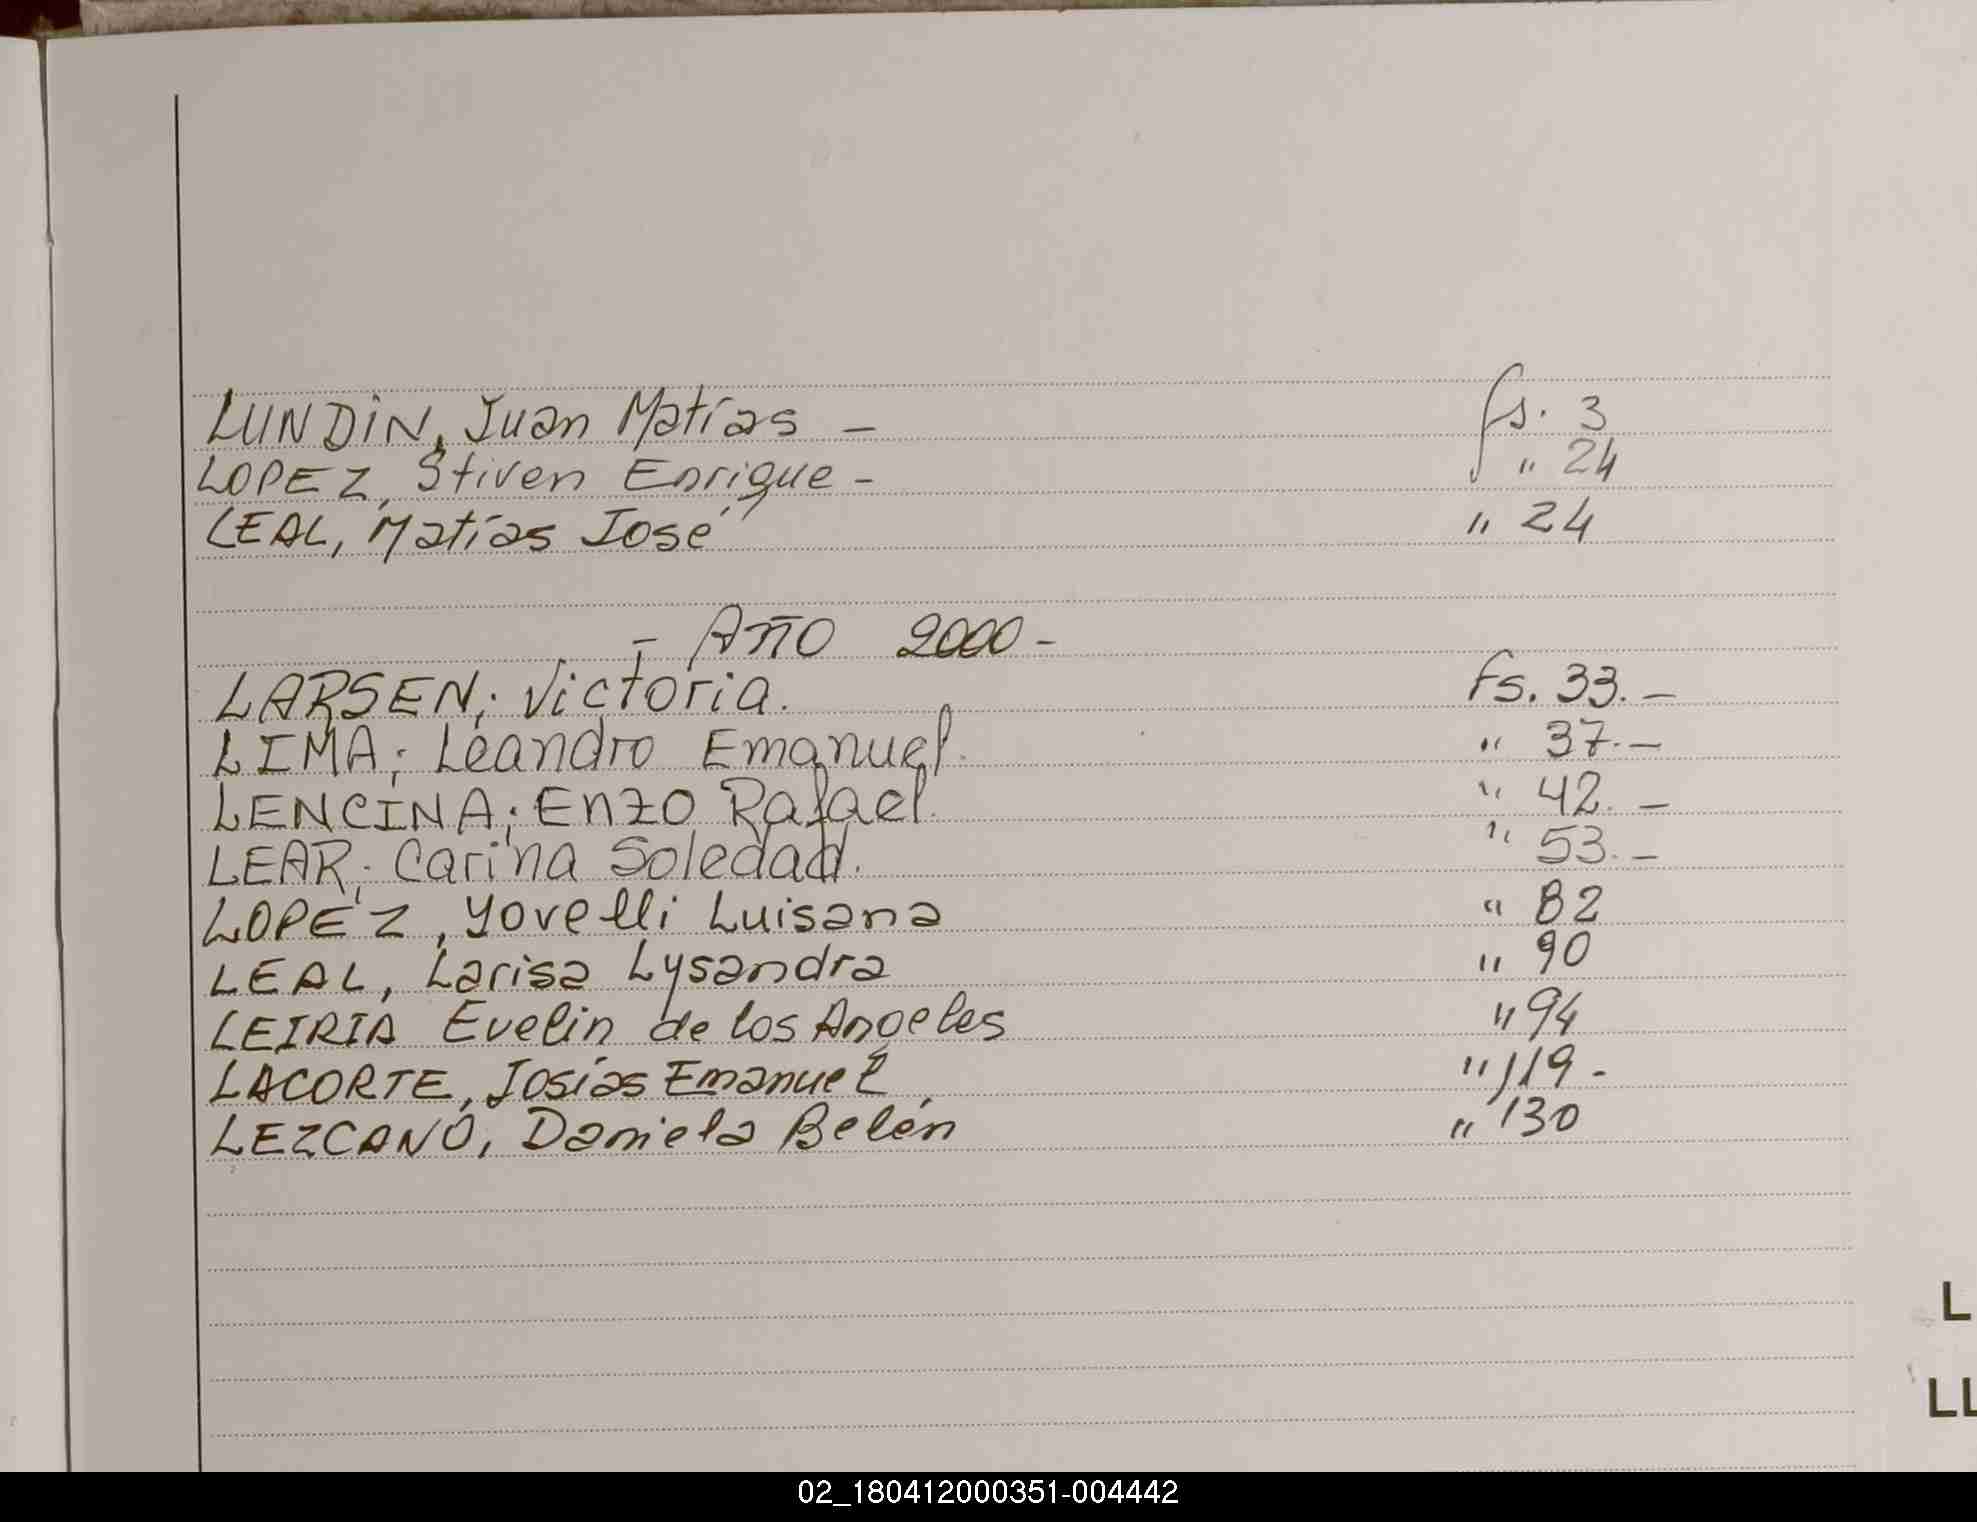 LUNDIN, Juan Matías — fs. 3
LOPEZ, Stiven Enrique - " 24
LEAL, Matías José " 24
- Año 2000 -
LARSEN; Victoria. Fs. 33.-
LIMA; Leandro Emanuel. " 37.-
LENCINA; Enzo Rafael. " 42.-
LEAR; Carina Soledad. " 53.-
LOPEZ, Yovelli Luisana " 82
LEAL, Larisa Lysandra " 90
LEIRIA Evelin de los Angeles " 94
LACORTE, Josías Emanuel " 119-
LEZCANO, Daniela Belén " 130
L
LL
02_180412000351-004442